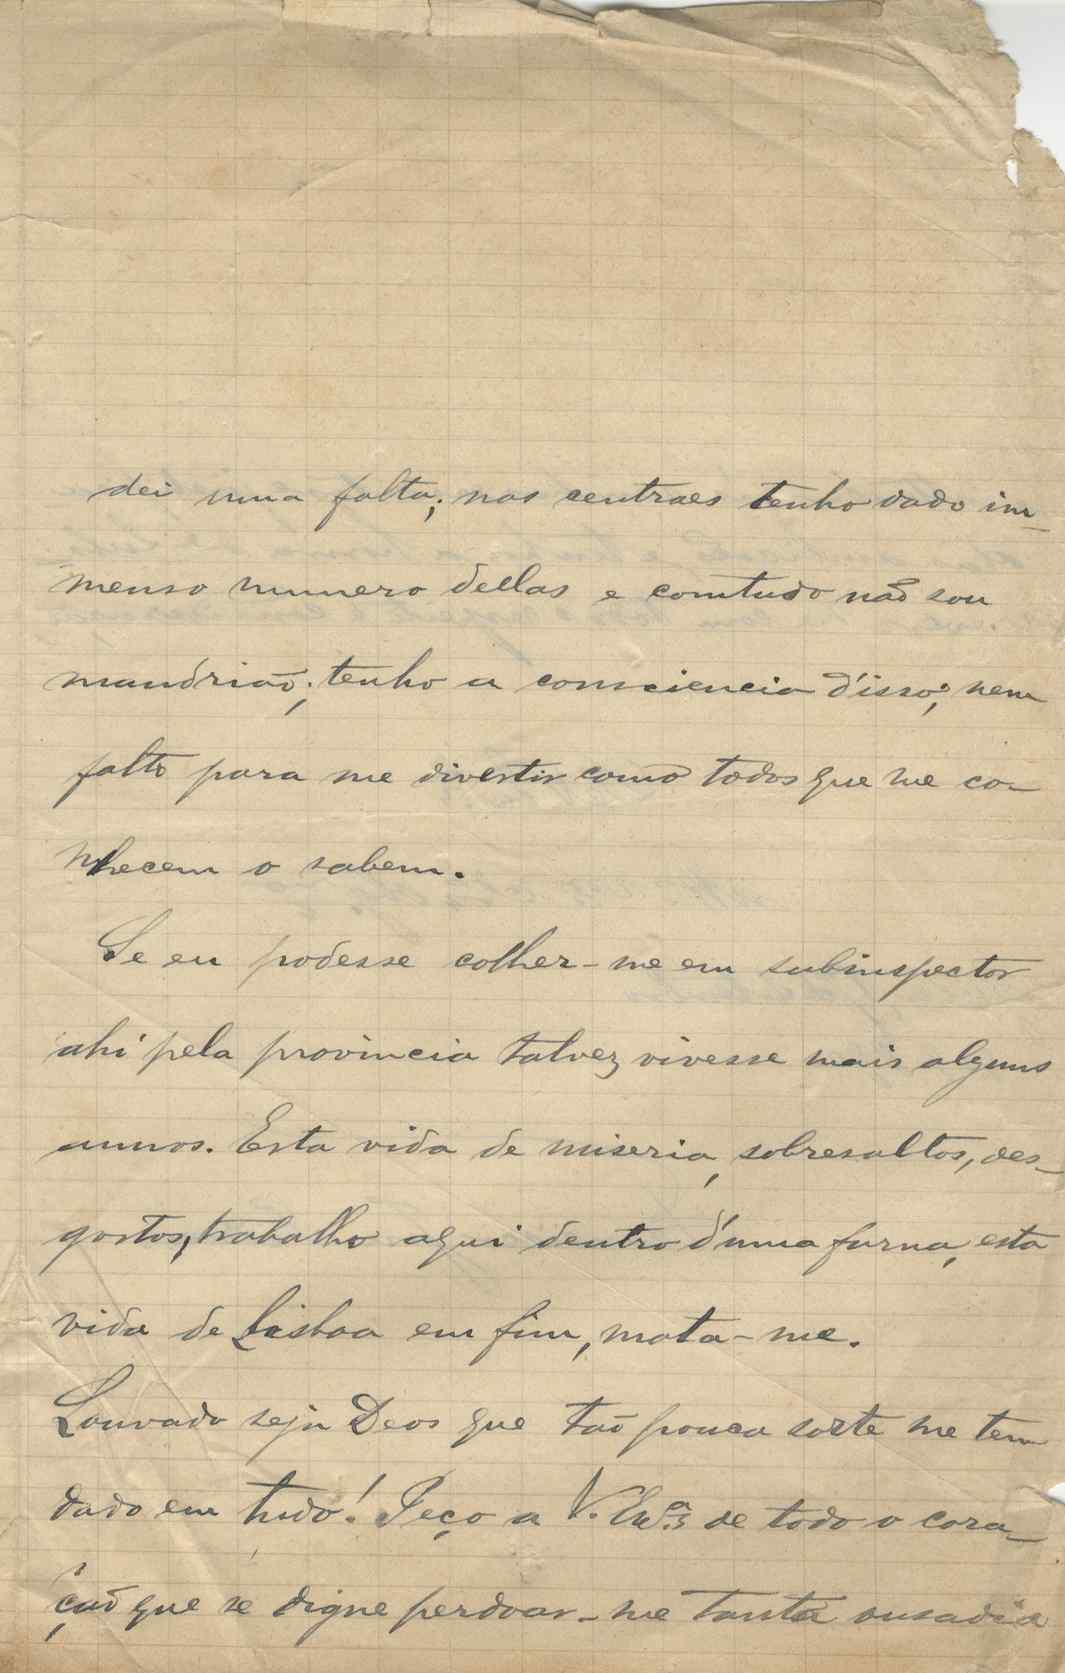 dei uma falta; nas centraes tenho dado im-
menso numero dellas e comtudo não sou
mandrião; tenho a consciencia d'isso; nem
falto para me divertir como todos que me co-
nhecem o sabem.
Se eu podesse colher-me em subinspector
ahi pela provincia talvez vivesse mais alguns
annos. Esta vida de miseria, sobresaltos, des-
gostos, trabalho aqui dentro d'uma furna, esta
vida de Lisboa em fim, mata-me.
Louvado seja Deos que tão pouca sorte me tem
dado em tudo! Peço a V. Exª de todo o cora-
ção que se digne perdoar-me tanta ousadia